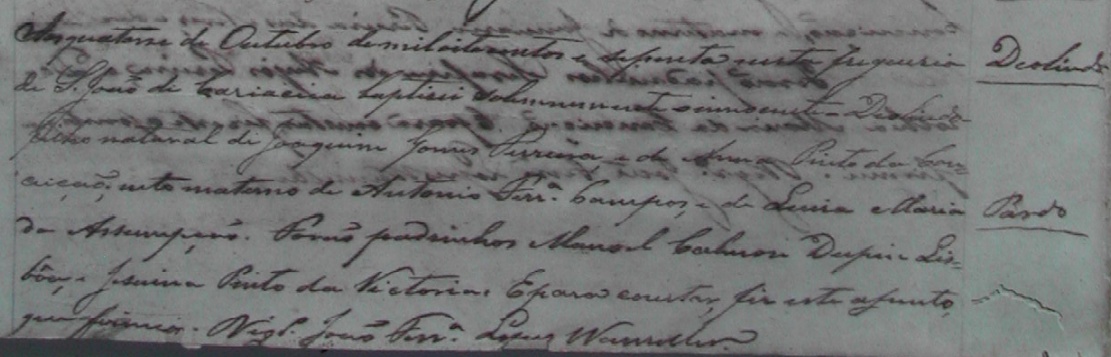 Aos quatorze de Outubro de mil oitocentos e setenta nesta freguezia
de S. João de Cariacica baptisei solemnemente o innocente Deolindo
filho natural de Joaquim Pereira, e de Anna Pinto da Con-
ceição, neto materno de Antonio Ferr.ª Campos, e de Luiza Maria
da Assumpção. Forão padrinhos Manoel Du pin e Lis-
bôa, e Jesuina Pinto da Victoria. E para constar, fiz este assento,
que firmei. Vig.º João Ferr.ª Lopes
Deolindo
Pardo